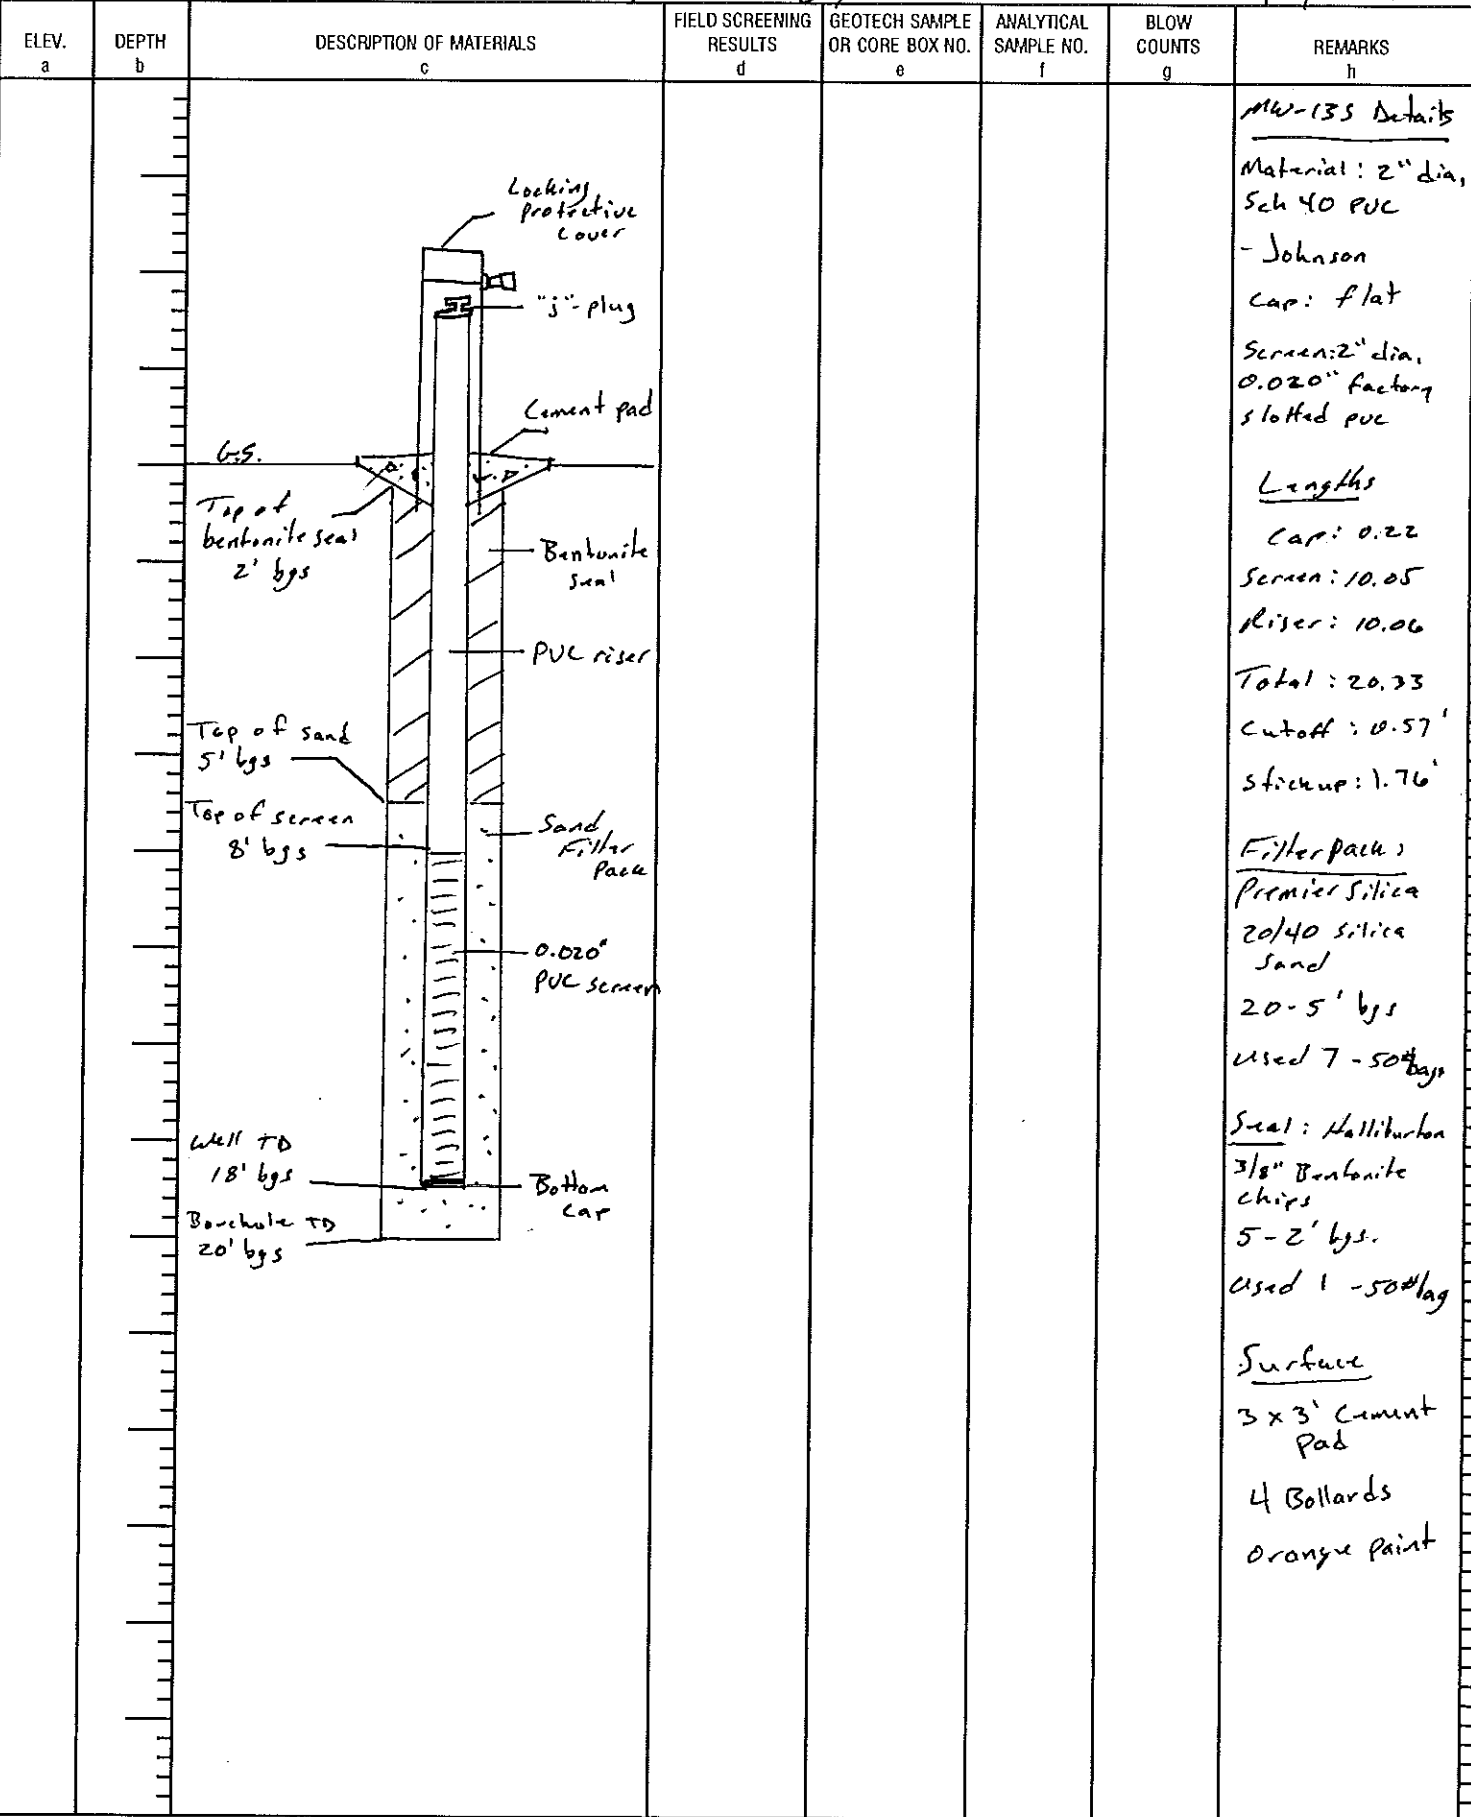 ELEV.
a
DEPTH
b
DESCRIPTION OF MATERIALS
c
FIELD SCREENING
RESULTS
d
GEOTECH SAMPLE
OR CORE BOX NO.
e
ANALYTICAL
SAMPLE NO.
f
BLOW
COUNTS
g
REMARKS
h
Locking
protective
cover
"j"-plug
Cement pad
G.S.
Top of
bentonite seal
2' bgs
Bentonite
seal
PVC riser
Top of sand
5' bgs
Top of screen
8' bgs
Sand
Filter
Pack
0.020"
PVC screen
Well TD
18' bgs
Bottom
cap
Borehole TD
20' bgs
MW-13S Details
Material: 2" dia,
Sch 40 PVC
- Johnson
Cap: flat
Screen: 2" dia,
0.020" factory
slotted PVC
Lengths
Cap: 0.22
Screen: 10.05
Riser: 10.06
Total: 20.33
Cutoff: 0.57'
Stickup: 1.76'
Filter pack:
Premier Silica
20/40 silica
sand
20-5' bgs
Used 7 - 50# bags
Seal: Halliburton
3/8" Bentonite
chips
5-2' bgs.
Used 1 - 50# bag
Surface
3 x 3' Cement
Pad
4 Bollards
Orange paint